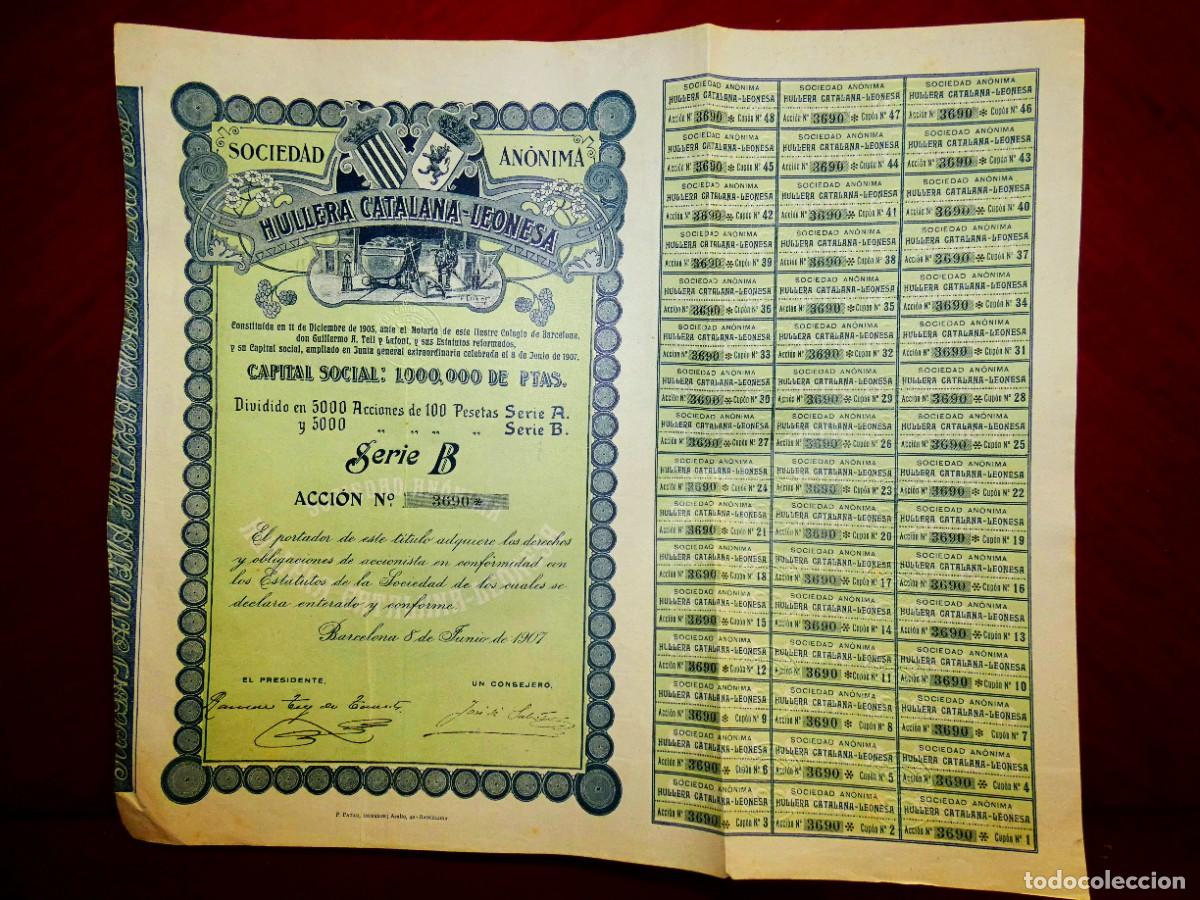 SOCIEDAD ANÓNIMA
HULLERA CATALANA-LEONESA
Constituída en 11 de Diciembre de 1905, ante el Notario de este Ilustre Colegio de Barcelona,
don Guillermo A. Tell y Lafont, y sus Estatutos reformados,
y su Capital social, ampliado en Junta general extraordinaria celebrada el 8 de Junio de 1907.
CAPITAL SOCIAL: 1.000,000 DE PTAS.
Dividido en 5000 Acciones de 100 Pesetas Serie A.
y 5000 „ „ „ „ Serie B.
Serie B
ACCIÓN Nº 3690
El portador de este título adquiere los derechos
y obligaciones de accionista en conformidad con
los Estatutos de la Sociedad de los cuales se
declara enterado y conforme.
Barcelona 8 de Junio de 1907
EL PRESIDENTE, UN CONSEJERO,
SOCIEDAD ANÓNIMA
HULLERA CATALANA-LEONESA
Acción Nº 3690 Cupón Nº 48
SOCIEDAD ANÓNIMA
HULLERA CATALANA-LEONESA
Acción Nº 3690 Cupón Nº 47
SOCIEDAD ANÓNIMA
HULLERA CATALANA-LEONESA
Acción Nº 3690 Cupón Nº 46
SOCIEDAD ANÓNIMA
HULLERA CATALANA-LEONESA
Acción Nº 3690 Cupón Nº 45
SOCIEDAD ANÓNIMA
HULLERA CATALANA-LEONESA
Acción Nº 3690 Cupón Nº 44
SOCIEDAD ANÓNIMA
HULLERA CATALANA-LEONESA
Acción Nº 3690 Cupón Nº 43
SOCIEDAD ANÓNIMA
HULLERA CATALANA-LEONESA
Acción Nº 3690 Cupón Nº 42
SOCIEDAD ANÓNIMA
HULLERA CATALANA-LEONESA
Acción Nº 3690 Cupón Nº 41
SOCIEDAD ANÓNIMA
HULLERA CATALANA-LEONESA
Acción Nº 3690 Cupón Nº 40
SOCIEDAD ANÓNIMA
HULLERA CATALANA-LEONESA
Acción Nº 3690 Cupón Nº 39
SOCIEDAD ANÓNIMA
HULLERA CATALANA-LEONESA
Acción Nº 3690 Cupón Nº 38
SOCIEDAD ANÓNIMA
HULLERA CATALANA-LEONESA
Acción Nº 3690 Cupón Nº 37
SOCIEDAD ANÓNIMA
HULLERA CATALANA-LEONESA
Acción Nº 3690 Cupón Nº 36
SOCIEDAD ANÓNIMA
HULLERA CATALANA-LEONESA
Acción Nº 3690 Cupón Nº 35
SOCIEDAD ANÓNIMA
HULLERA CATALANA-LEONESA
Acción Nº 3690 Cupón Nº 34
SOCIEDAD ANÓNIMA
HULLERA CATALANA-LEONESA
Acción Nº 3690 Cupón Nº 33
SOCIEDAD ANÓNIMA
HULLERA CATALANA-LEONESA
Acción Nº 3690 Cupón Nº 32
SOCIEDAD ANÓNIMA
HULLERA CATALANA-LEONESA
Acción Nº 3690 Cupón Nº 31
SOCIEDAD ANÓNIMA
HULLERA CATALANA-LEONESA
Acción Nº 3690 Cupón Nº 30
SOCIEDAD ANÓNIMA
HULLERA CATALANA-LEONESA
Acción Nº 3690 Cupón Nº 29
SOCIEDAD ANÓNIMA
HULLERA CATALANA-LEONESA
Acción Nº 3690 Cupón Nº 28
SOCIEDAD ANÓNIMA
HULLERA CATALANA-LEONESA
Acción Nº 3690 Cupón Nº 27
SOCIEDAD ANÓNIMA
HULLERA CATALANA-LEONESA
Acción Nº 3690 Cupón Nº 26
SOCIEDAD ANÓNIMA
HULLERA CATALANA-LEONESA
Acción Nº 3690 Cupón Nº 25
SOCIEDAD ANÓNIMA
HULLERA CATALANA-LEONESA
Acción Nº 3690 Cupón Nº 24
SOCIEDAD ANÓNIMA
HULLERA CATALANA-LEONESA
Acción Nº 3690 Cupón Nº 23
SOCIEDAD ANÓNIMA
HULLERA CATALANA-LEONESA
Acción Nº 3690 Cupón Nº 22
SOCIEDAD ANÓNIMA
HULLERA CATALANA-LEONESA
Acción Nº 3690 Cupón Nº 21
SOCIEDAD ANÓNIMA
HULLERA CATALANA-LEONESA
Acción Nº 3690 Cupón Nº 20
SOCIEDAD ANÓNIMA
HULLERA CATALANA-LEONESA
Acción Nº 3690 Cupón Nº 19
SOCIEDAD ANÓNIMA
HULLERA CATALANA-LEONESA
Acción Nº 3690 Cupón Nº 18
SOCIEDAD ANÓNIMA
HULLERA CATALANA-LEONESA
Acción Nº 3690 Cupón Nº 17
SOCIEDAD ANÓNIMA
HULLERA CATALANA-LEONESA
Acción Nº 3690 Cupón Nº 16
SOCIEDAD ANÓNIMA
HULLERA CATALANA-LEONESA
Acción Nº 3690 Cupón Nº 15
SOCIEDAD ANÓNIMA
HULLERA CATALANA-LEONESA
Acción Nº 3690 Cupón Nº 14
SOCIEDAD ANÓNIMA
HULLERA CATALANA-LEONESA
Acción Nº 3690 Cupón Nº 13
SOCIEDAD ANÓNIMA
HULLERA CATALANA-LEONESA
Acción Nº 3690 Cupón Nº 12
SOCIEDAD ANÓNIMA
HULLERA CATALANA-LEONESA
Acción Nº 3690 Cupón Nº 11
SOCIEDAD ANÓNIMA
HULLERA CATALANA-LEONESA
Acción Nº 3690 Cupón Nº 10
SOCIEDAD ANÓNIMA
HULLERA CATALANA-LEONESA
Acción Nº 3690 Cupón Nº 9
SOCIEDAD ANÓNIMA
HULLERA CATALANA-LEONESA
Acción Nº 3690 Cupón Nº 8
SOCIEDAD ANÓNIMA
HULLERA CATALANA-LEONESA
Acción Nº 3690 Cupón Nº 7
SOCIEDAD ANÓNIMA
HULLERA CATALANA-LEONESA
Acción Nº 3690 Cupón Nº 6
SOCIEDAD ANÓNIMA
HULLERA CATALANA-LEONESA
Acción Nº 3690 Cupón Nº 5
SOCIEDAD ANÓNIMA
HULLERA CATALANA-LEONESA
Acción Nº 3690 Cupón Nº 4
SOCIEDAD ANÓNIMA
HULLERA CATALANA-LEONESA
Acción Nº 3690 Cupón Nº 3
SOCIEDAD ANÓNIMA
HULLERA CATALANA-LEONESA
Acción Nº 3690 Cupón Nº 2
SOCIEDAD ANÓNIMA
HULLERA CATALANA-LEONESA
Acción Nº 3690 Cupón Nº 1
todocoleccion